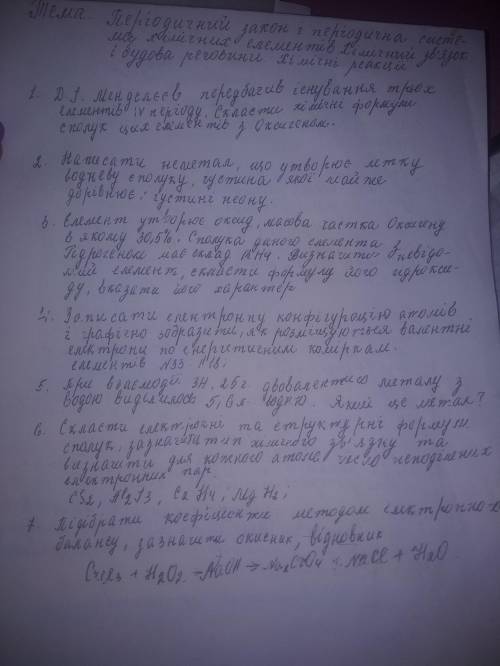 Тема. Періодичний закон і періодична систе-
ма хімічних елементів Хімічний зв'язок
і будова речовини Хімічні реакції
1. Д.І. Менделєєв передбачив існування трьох
елементів IV періоду. Скласти хімічні формули
сполук цих елементів з Оксигеном.
2. Написати неметал, що утворює летку
водневу сполуку, густина якої майже
дорівнює густині неону.
3. Елемент утворює оксид, масова частка Оксигену
в якому 30,5%. Сполука даного елемента з
Гідрогеном має склад RH4. Визначити невідо-
мий елемент, скласти формулу його гідрокси-
ду, вказати його характер
4. Записати електронну конфігурацію атомів
і графічно зобразити, як розміщуються валентні
електрони по енергетичним коміркам.
елементів №33 №18;
5. При взаємодії 34,25г двовалентного металу з
водою виділилось 5,6л водню. Який це метал?
6. Скласти електронні та структурні формули
сполук, зазначити тип хімічного зв'язку та
визначити для кожного атома число неподілених
електронних пар.
CS2, C2H4;
7. Підібрати коефіцієнти методом електронного
балансу, зазначити окисник, відновник
CrCl3 + H2O2 + NaOH → Na2CrO4 + NaCl + H2O